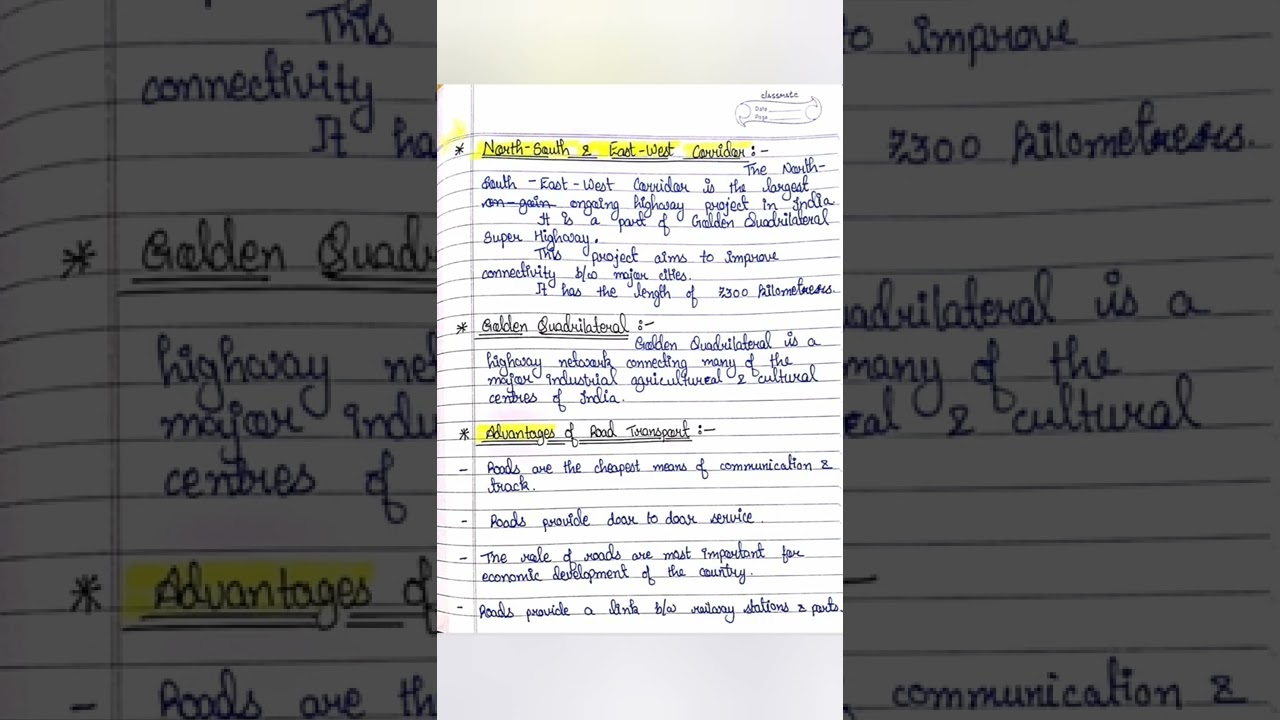 classmate
Date
Page
* North-South & East-West Corridor :-
The North-
South - East - West Corridor is the largest
on-goin ongoing highway project in India
It is a part of Golden Quadrilateral
Super Highway.
This project aims to improve
connectivity b/w major cities.
It has the length of 7300 kilometres.
* Golden Quadrilateral :-
Golden Quadrilateral is a
highway network connecting many of the
major industrial agricultural & cultural
centres of India.
* Advantages of Road Transport :-
- Roads are the cheapest means of communication &
track.
- Roads provide door to door service.
- The role of roads are most important for
economic development of the country.
- Roads provide a link b/w railway stations & ports.